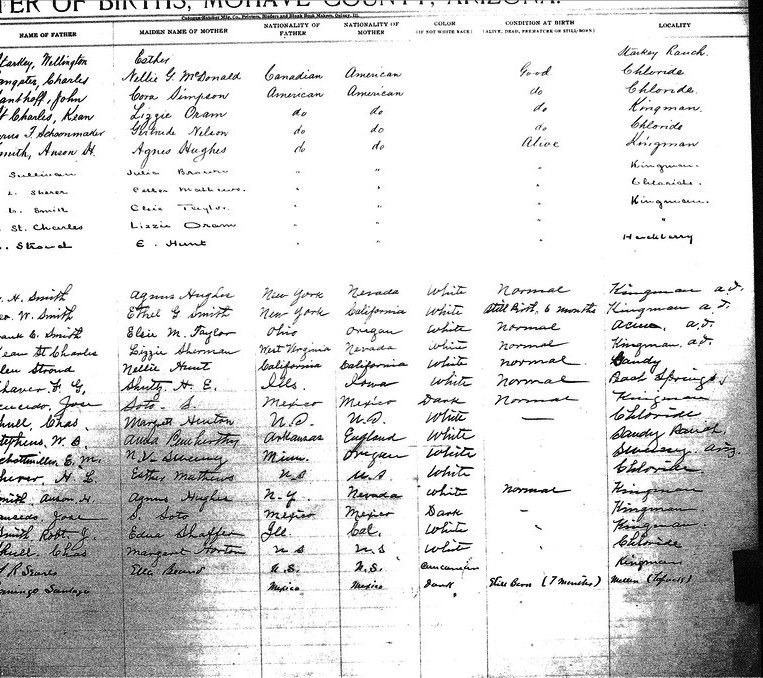 TER OF BIRTHS, MOHAVE COUNTY, ARIZONA.
NAME OF FATHER MAIDEN NAME OF MOTHER NATIONALITY OF FATHER NATIONALITY OF MOTHER COLOR (IF NOT WHITE RACE) CONDITION AT BIRTH (ALIVE, DEAD, PREMATURE OR STILL-BORN) LOCALITY
Starkey, Wellington Esther Starkey Ranch.
Sangster, Charles Nellie G McDonald Canadian American Good Chloride
John Cora Simpson American American do Chloride.
St Charles, Kean Lizzie Oram do do do Kingman.
T. Schoonmaker Gertrude Nelson do do do Chloride
Smith, Anson H. Agnes Hughes do do Alive Kingman
Sullivan Julia Brown " " " Kingman.
L. Sherer Esther Mathews. " " " Chloride.
C. Smith Elsie Taylor. " " " Kingman.
St. Charles Lizzie Oram " " " "
Stroud E. Hunt " " " Hackberry
H. Smith Agnes Hughes New York Nevada White Normal Kingman a.t.
W. Smith Ethel G Smith New York California White Still Birth, 6 months Kingman a.t.
Frank C. Smith Elsie M. Taylor Ohio Oregon White normal Acme, a.t.
Kean St Charles Lizzie Sherman West Virginia Nevada White normal Kingman a.t.
Stroud Nellie Hunt California California White normal Sandy
Shaver F G, Shutty H. E. Ills. Iowa White Normal Springs
Jose Soto. S. Mexico Mexico Dark Normal Kingman
Shull, Chas. Margett Hinton U.S. U.S. White — Chloride
Stephens, W. B. Anna Arkansas England White Sandy
E. M. N. V. Sweeney Minn. Oregon White Ariz.
Sherer, H. L. Esther Mathews U S U.S White Chloride
Smith, Anson H. Agnes Hughes N.Y. Nevada White Normal Kingman
Jose S. Soto Mexico Mexico Dark - Kingman
Smith, Robt. G. Edna Shaffer Ill. Cal. White Kingman
Shull. Chas Margaret Horton U S U.S White Chloride
R Sears Ella U.S. U.S. Caucasian Kingman
Domingo Mexico Mexico Dark. Still Born (7 months)